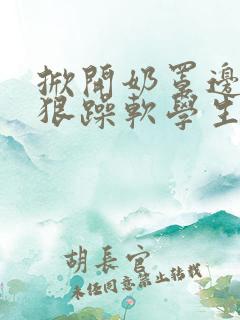 掀開奶罩邊
狠躁軟學生
胡長官
未经同意禁止转载